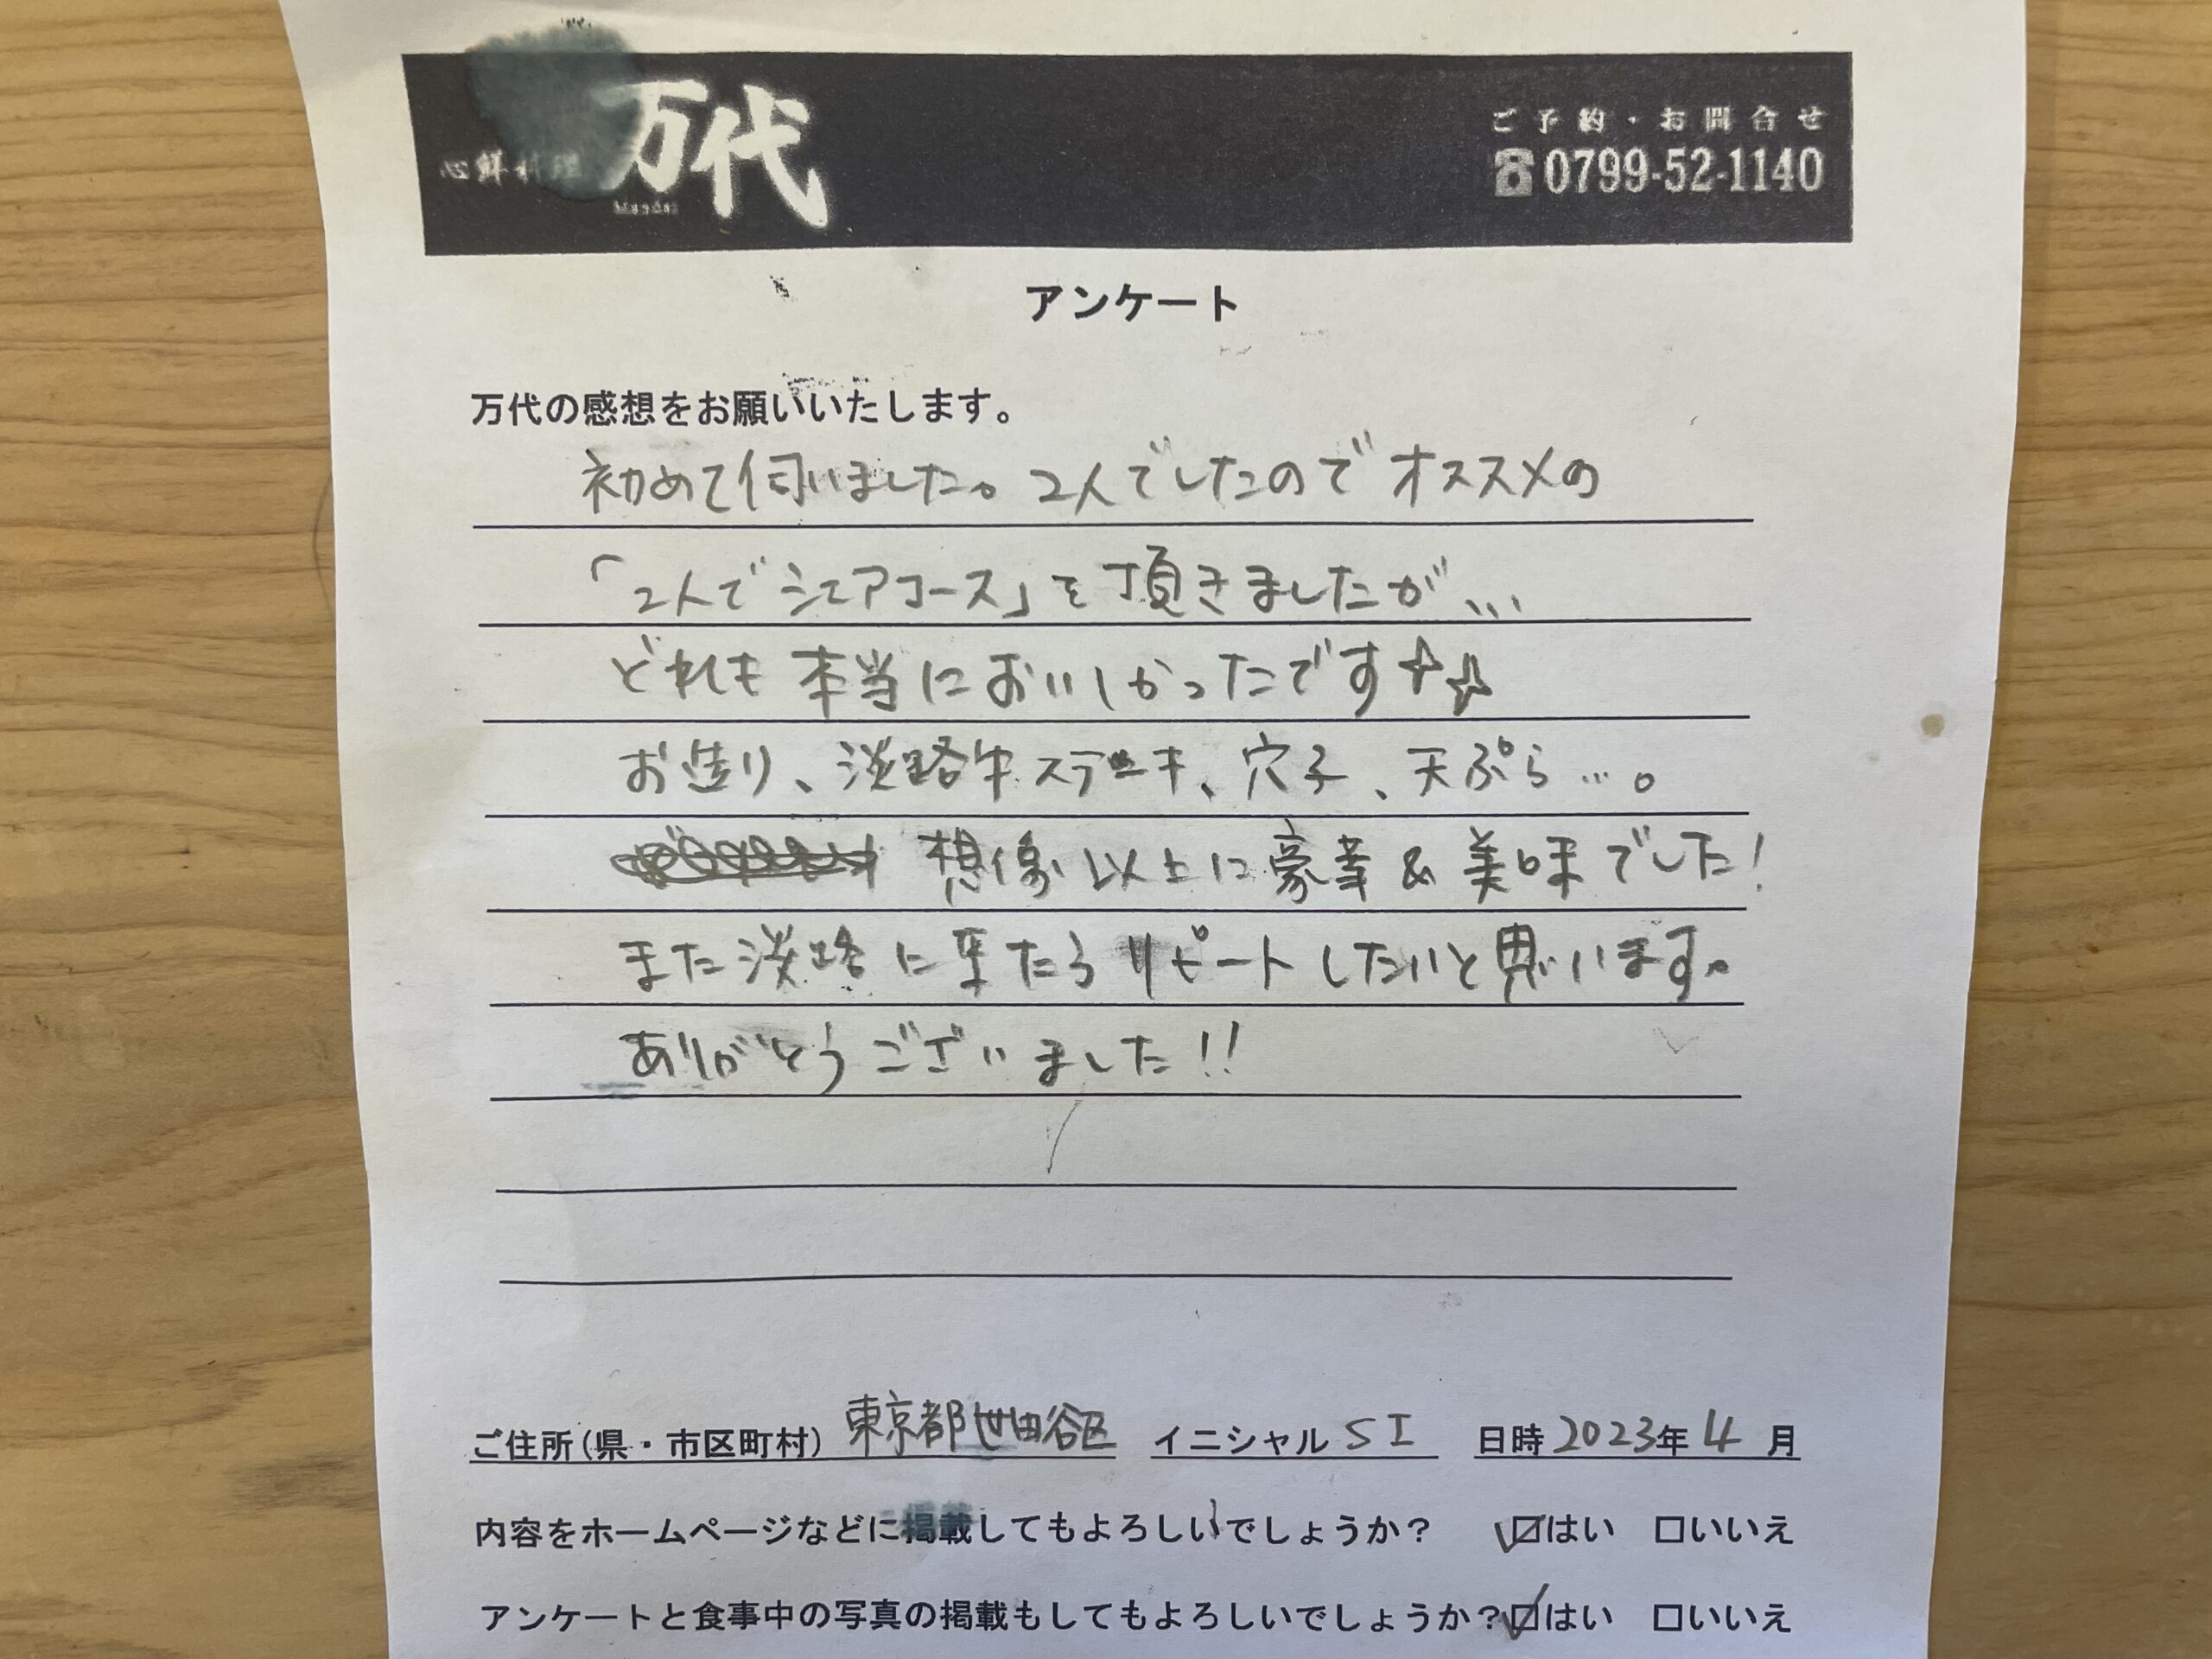 心鮮料理 万代
Mandai
ご予約・お問合せ
☎0799-52-1140
アンケート
万代の感想をお願いいたします。
初めて伺いました。2人でしたのでオススメの
「2人でシェアコース」を頂きましたが...
どれも本当においしかったです☆☆
お造り、淡路牛ステーキ、穴子、天ぷら…。
想像以上に豪華&美味でした!
また淡路に来たらリピートしたいと思います。
ありがとうございました!!
ご住所(県・市区町村) 東京都世田谷区 イニシャル SI 日時 2023年 4 月
内容をホームページなどに掲載してもよろしいでしょうか? ☑はい □いいえ
アンケートと食事中の写真の掲載もしてもよろしいでしょうか?☑はい □いいえ